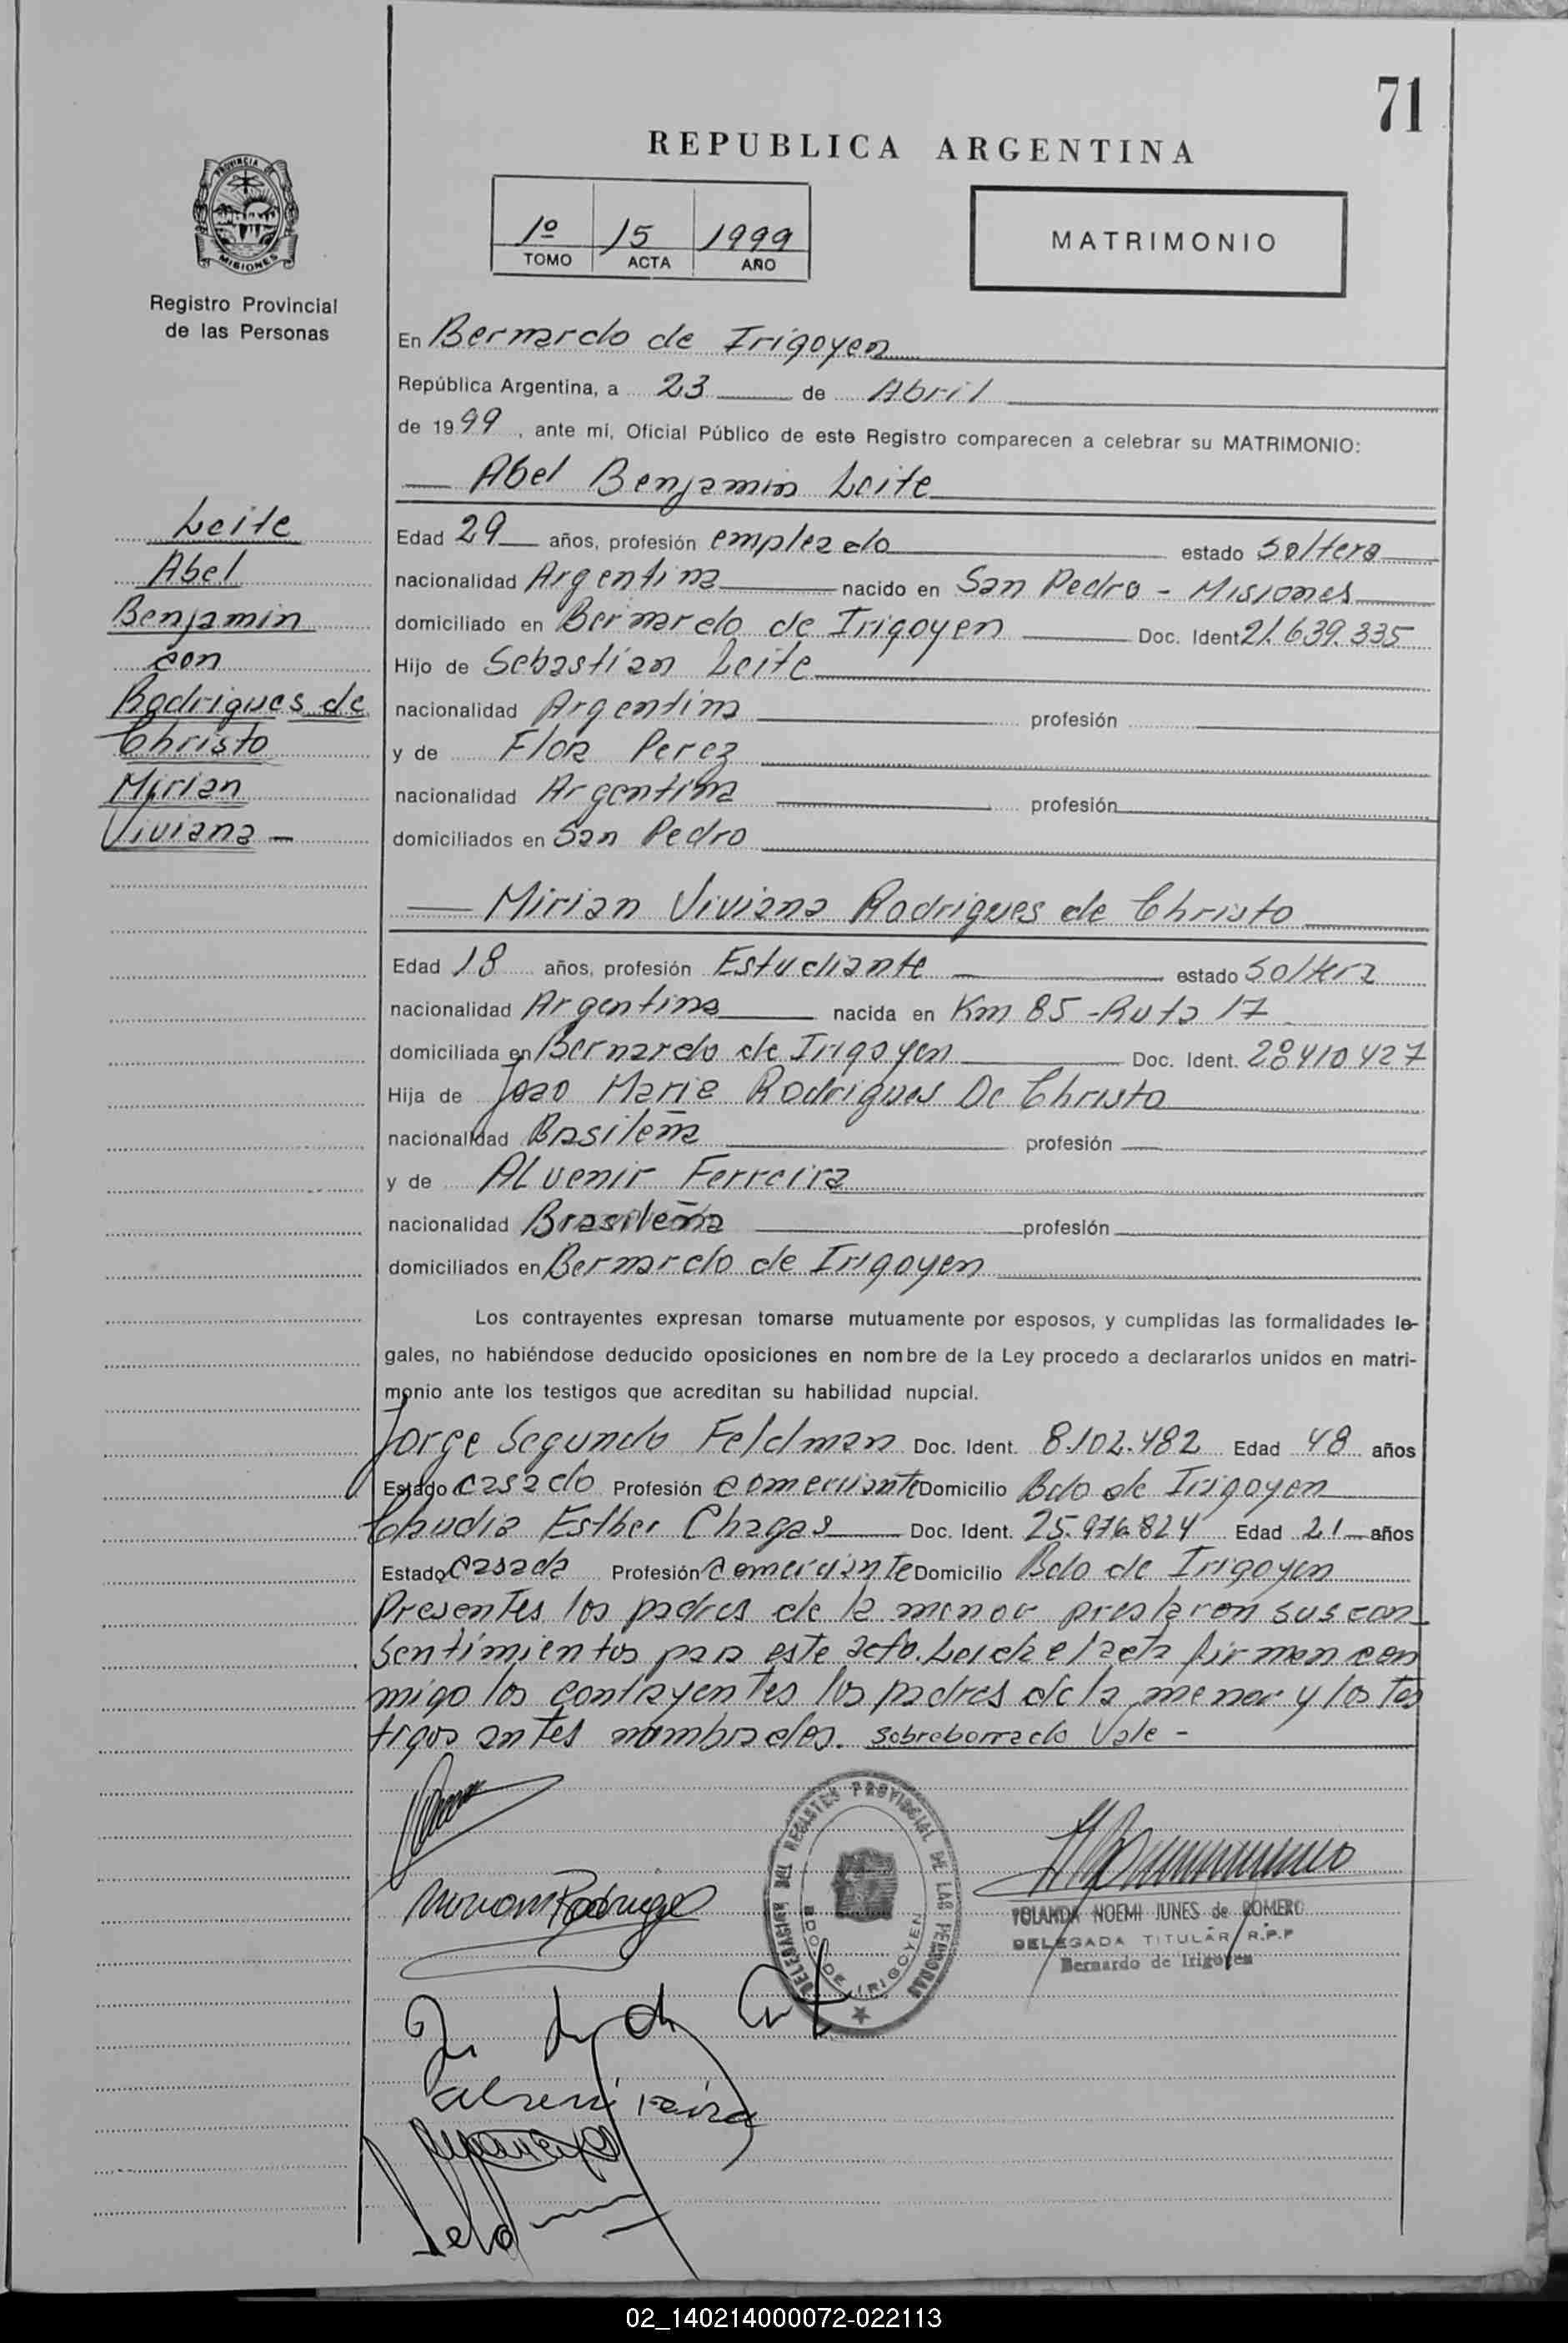 71
REPUBLICA ARGENTINA
PROVINCIA DE
MISIONES
Registro Provincial
de las Personas
1º 15 1999
TOMO ACTA AÑO
MATRIMONIO
En Bernardo de Irigoyen
República Argentina, a 23 de Abril
de 1999, ante mí, Oficial Público de este Registro comparecen a celebrar su MATRIMONIO:
Abel Benjamin Leite
Leite
Abel
Benjamin
con
Rodrigues de
Christo
Mirian
Viviana -
Edad 29 años, profesión empleado estado Soltero
nacionalidad Argentina nacido en San Pedro - Misiones
domiciliado en Bernardo de Irigoyen Doc. Ident 21.639.335
Hijo de Sebastian Leite
nacionalidad Argentina profesión
y de Flora Perez
nacionalidad Argentina profesión
domiciliados en San Pedro
Mirian Viviana Rodrigues de Christo
Edad 18 años, profesión Estudiante estado Soltera
nacionalidad Argentina nacida en Km 85 - Ruta 17
domiciliada en Bernardo de Irigoyen Doc. Ident. 28410427
Hija de Joao Maria Rodrigues De Christo
nacionalidad Brasileña profesión
y de ALvenir Ferreira
nacionalidad Brasileña profesión
domiciliados en Bernardo de Irigoyen
Los contrayentes expresan tomarse mutuamente por esposos, y cumplidas las formalidades le-
gales, no habiéndose deducido oposiciones en nombre de la Ley procedo a declararlos unidos en matri-
monio ante los testigos que acreditan su habilidad nupcial.
Jorge Segundo Feldman Doc. Ident. 8.102.482 Edad 48 años
Estado casado Profesión comerciante Domicilio Bdo de Irigoyen
Claudia Esther Chagas Doc. Ident. 25.976.824 Edad 21 años
Estado casada Profesión comerciante Domicilio Bdo de Irigoyen
Presentes los padres de la menor prestaron sus con-
sentimientos para este acto. Leida el acta firman con
migo los contrayentes los padres de la menor y los tes
tigos antes nombrados. sobreborrado Vale -
DELEGACION DEL REGISTRO PROVINCIAL DE LAS PERSONAS
BDO. DE IRIGOYEN
Miriam Rodrigues
YOLANDA NOEMI JUNES de ROMERO
DELEGADA TITULAR R.P.P
Bernardo de Irigoyen
02_140214000072-022113